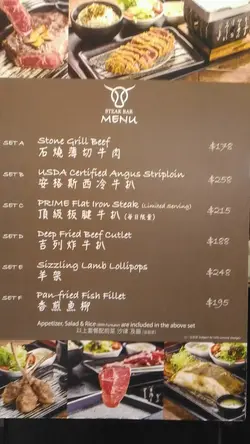 STEAK BAR
MENU
SET A Stone Grill Beef $178
石燒薄切牛肉
SET B USDA Certified Angus Striploin $258
安格斯西冷牛扒
SET C PRIME Flat Iron Steak (Limited Serving) $215
頂級板腱牛扒 (每日限量)
SET D Deep Fried Beef Cutlet $188
吉列炸牛扒
SET E Sizzling Lamb Lollipops $248
羊架
SET F Pan-fried Fish Fillet $195
香煎魚柳
Appetizer, Salad & Rice are included in the above set
以上套餐配前菜 沙律 及飯